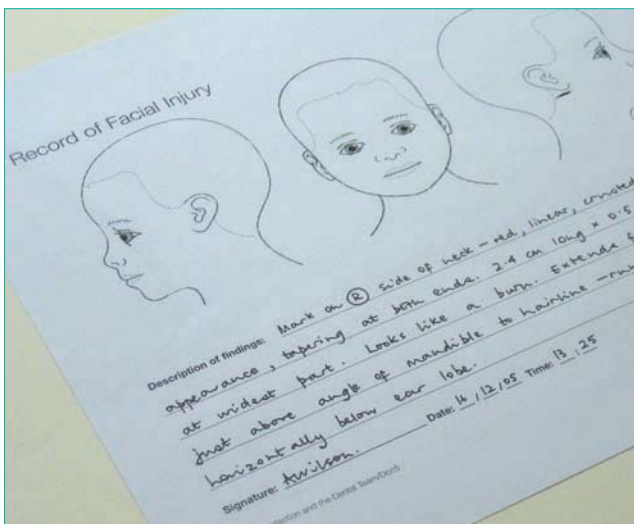 Record of Facial Injury
Description of findings: Mark on R side of neck – red, linear, crusted
appearance, tapering at both ends. 2.4 cm long x 0.5
at widest part. Looks like a burn. Extends
just above angle of mandible to hairline –
horizontally below ear lobe.
Signature: AWilson. Date: 16/12/05 Time: 13:25
and the Dental Team/Doc5